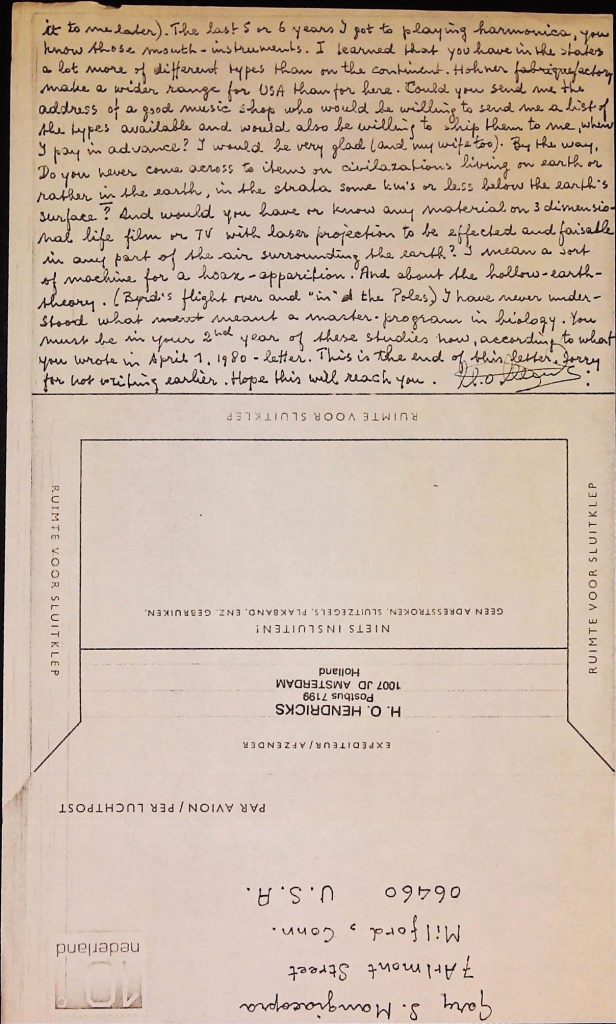 it to me later). The last 5 or 6 years I got to playing harmonica, you
know those mouth-instruments. I learned that you have in the states
a lot more of different types than on the continent. Hohner fabrique factory
make a wider range for USA than for here. Could you send me the
address of a good music shop who would be willing to send me a list of
the types available and would also be willing to ship them to me, when
I pay in advance? I would be very glad (and my wife too). By the way,
Do you never come across to items on civilazations living on earth or
rather in the earth, in the strata some km's or less below the earth's
surface? And would you have or know any material on 3 dimensio-
nal life film or TV with laser projection to be effected and faisable
in any part of the air surrounding the earth? I mean a sort
of machine for a hoax-apparition. And about the hollow-earth-
theory. (Byrd's flight over and "in" the Poles,) I have never under-
stood what meant a master-program in biology. You
must be in your 2nd year of these studies now, according to what
you wrote in April 7, 1980-letter. This is the end of this letter. Sorry
for not writing earlier. Hope this will reach you.
RUIMTE VOOR SLUITKLEP
RUIMTE VOOR SLUITKLEP
RUIMTE VOOR SLUITKLEP
GEEN ADRESSTROKEN, SLUITZEGELS, PLAKBAND, ENZ. GEBRUIKEN.
NIETS INSLUITEN!
H. O. HENDRICKS
Postbus 7199
1007 JD AMSTERDAM
Holland
EXPÉDITEUR/AFZENDER
PAR AVION / PER LUCHTPOST
nederland
Gary S. Mangiacopra
7 Arlmont Street
Milford, Conn.
06460 U.S.A.